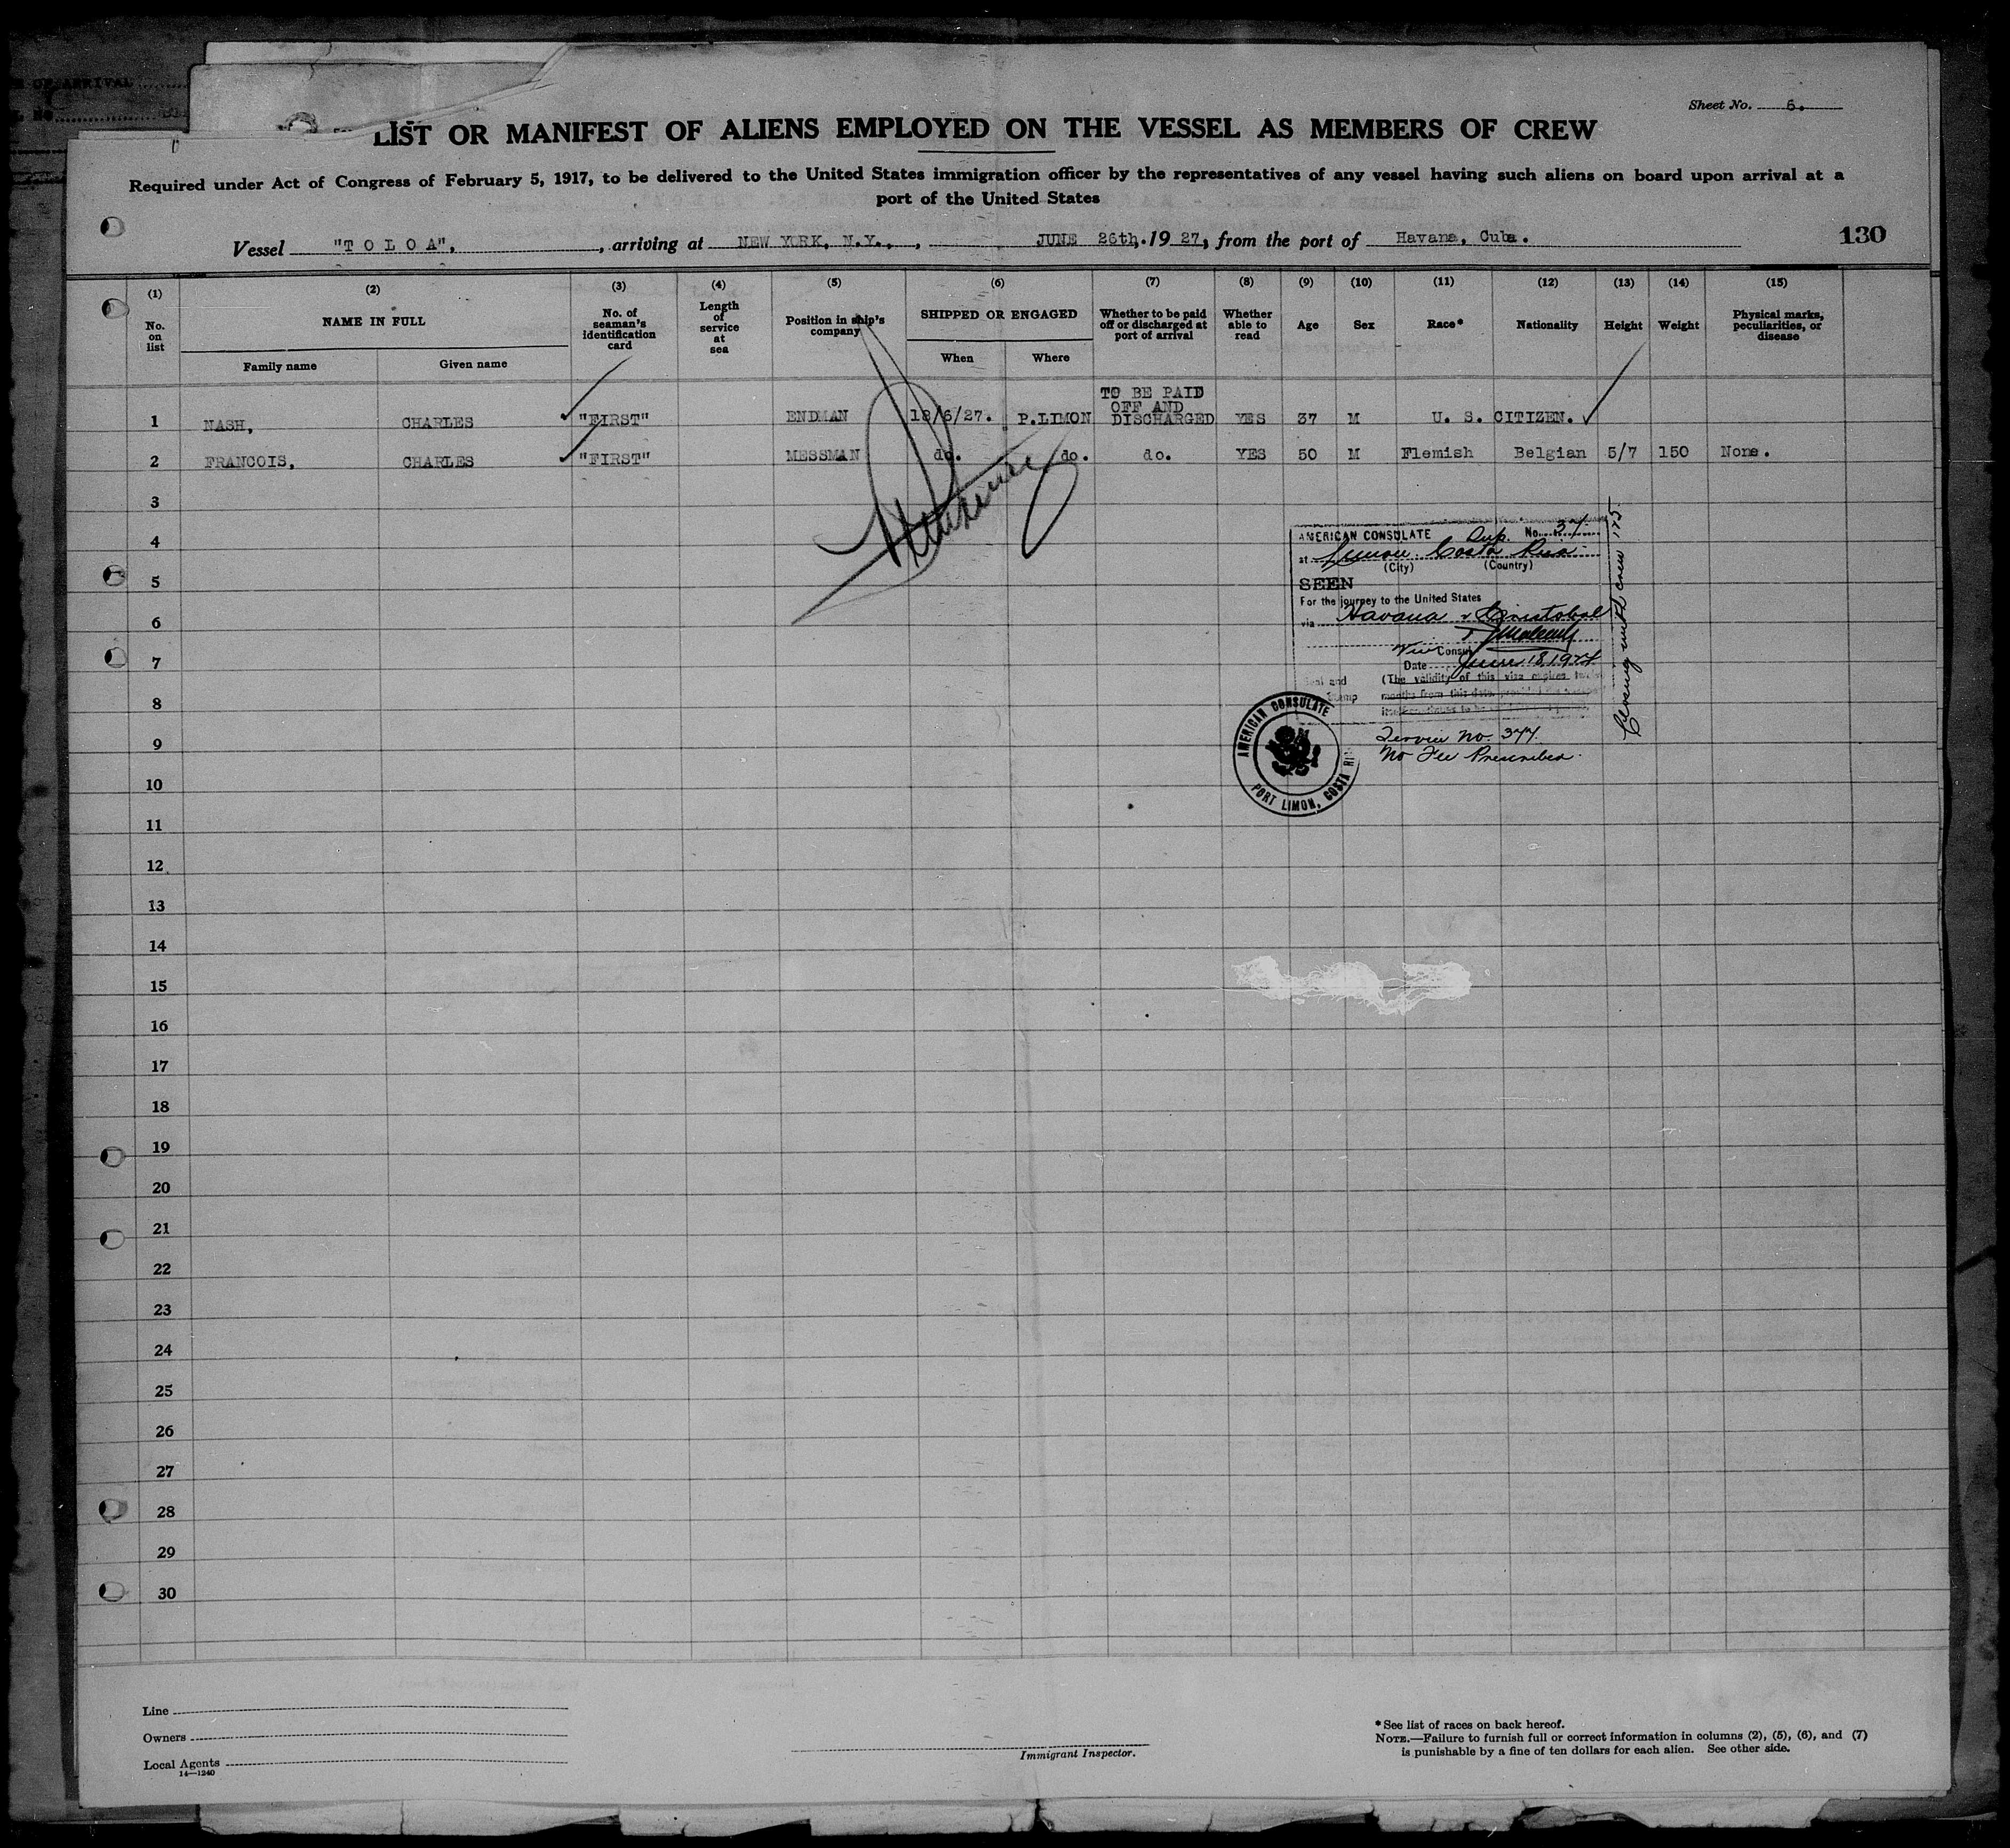 OF ARRIVAL
Sheet No. 6.
LIST OR MANIFEST OF ALIENS EMPLOYED ON THE VESSEL AS MEMBERS OF CREW
Required under Act of Congress of February 5, 1917, to be delivered to the United States immigration officer by the representatives of any vessel having such aliens on board upon arrival at a
port of the United States
Vessel "T O L O A", , arriving at NEW YORK, N.Y., , JUNE 26th. 19 27, from the port of Havana, Cuba. 130
(1) (2) (3) (4) (5) (6) (7) (8) (9) (10) (11) (12) (13) (14) (15)
No. on list
NAME IN FULL
Family name Given name
No. of seaman's identification card
Length of service at sea
Position in ship's company
SHIPPED OR ENGAGED
When Where
Whether to be paid off or discharged at port of arrival
Whether able to read
Age Sex Race* Nationality Height Weight
Physical marks, peculiarities, or disease
TO BE PAID
OFF AND
1 NASH, CHARLES "FIRST" ENDMAN 18/6/27. P.LIMON DISCHARGED YES 37 M U. S. CITIZEN.
2 FRANCOIS, CHARLES "FIRST" MESSMAN do. do. do. YES 50 M Flemish Belgian 5/7 150 None.
3
4
5
6
7
8
9
10
11
12
13
14
15
16
17
18
19
20
21
22
23
24
25
26
27
28
29
30
AMERICAN CONSULATE Dup. No. 37
at Limon. Costa Rica
(City) (Country)
SEEN
For the journey to the United States
via Havana & Cristobal
Vice Consul
Date June 18, 1927
(The validity of this visa expires
months from this date, provided
Seal and
Stamp
Service No. 377.
No Fee Prescribed.
Closing with crew 125
AMERICAN CONSULATE
PORT LIMON, COSTA RI
Line
Owners
Local Agents
14—1240
Immigrant Inspector.
* See list of races on back hereof.
NOTE.—Failure to furnish full or correct information in columns (2), (5), (6), and (7)
is punishable by a fine of ten dollars for each alien. See other side.